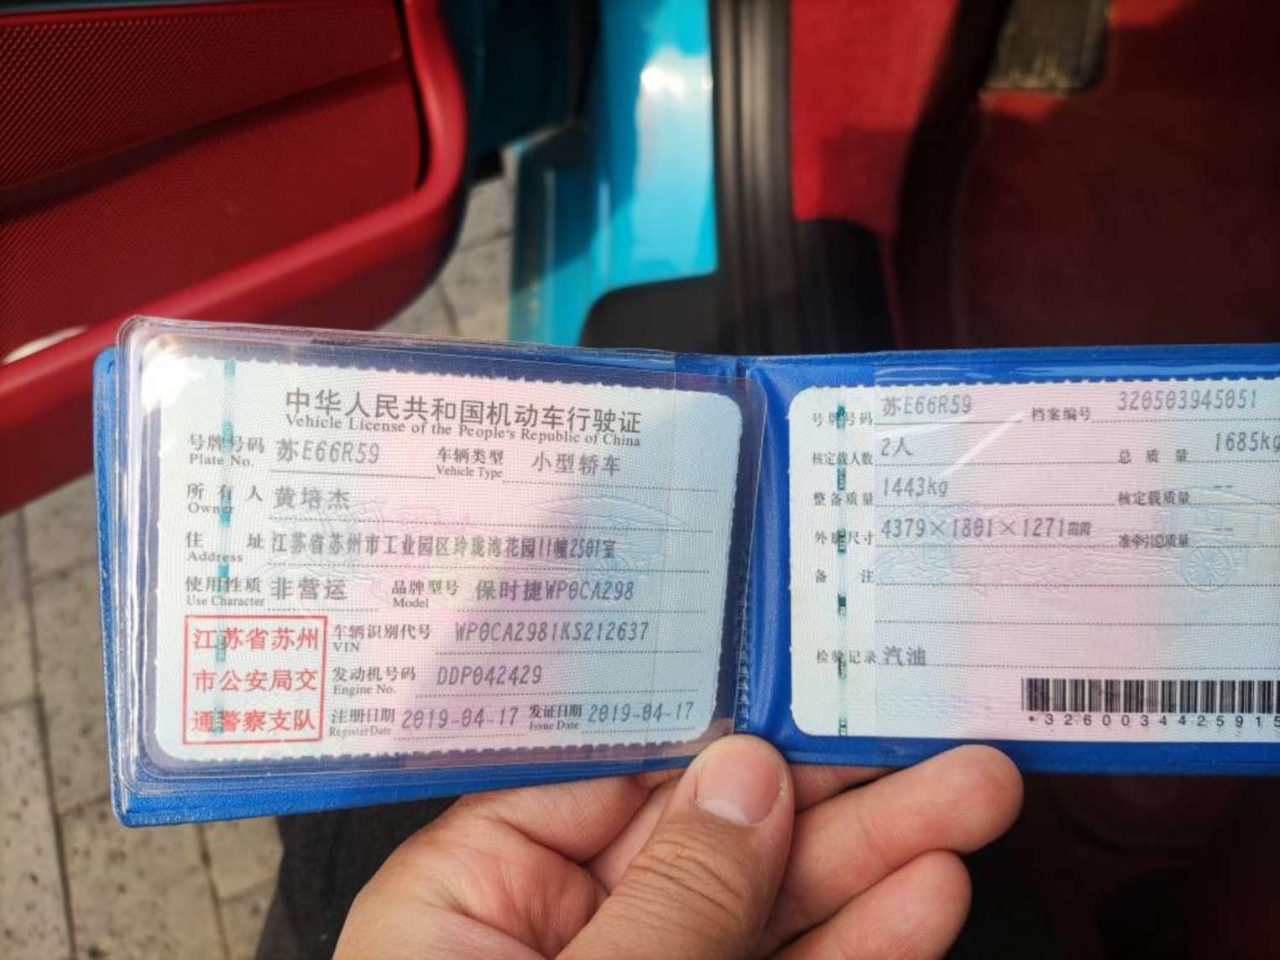 中华人民共和国机动车行驶证
Vehicle License of the People's Republic of China
号牌号码 苏E66R59 车辆类型 小型轿车
Plate No. Vehicle Type
所有人 黄培杰
Owner
住址 江苏省苏州市工业园区玲珑湾花园11幢2501室
Address
使用性质 非营运 品牌型号 保时捷WP0CA298
Use Character Model
江苏省苏州
市公安局交
通警察支队
车辆识别代号 WP0CA2981KS212637
VIN
发动机号码 DDP042429
Engine No.
注册日期 2019-04-17 发证日期 2019-04-17
Register Date Issue Date
号牌号码 苏E66R59 档案编号 320503945051
核定载人数 2人 总质量 1685kg
整备质量 1443kg 核定载质量 --
外廓尺寸 4379×1801×1271mm 准牵引总质量 --
备注
检验记录 汽油
*3260034425915